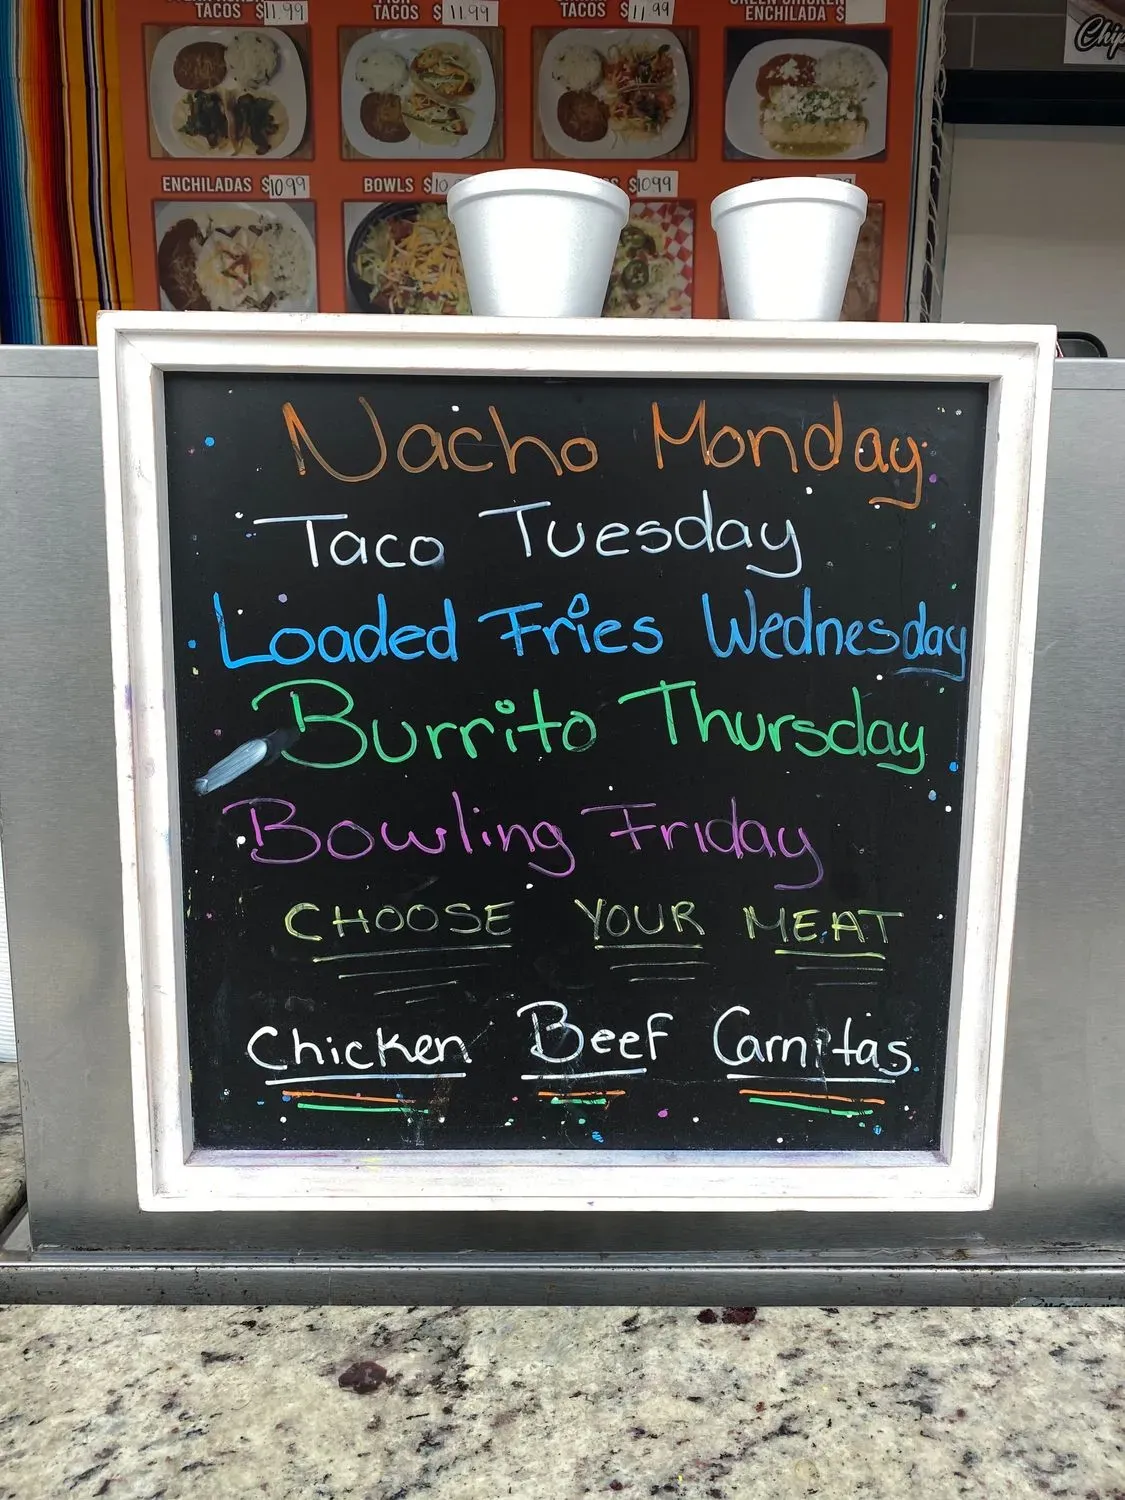 TACOS $11.99
TACOS $11.99
TACOS $11.99
ENCHILADA $
Chip
ENCHILADAS $10.99
BOWLS $10
$10.99
Nacho Monday
Taco Tuesday
Loaded Fries Wednesday
Burrito Thursday
Bowling Friday
CHOOSE YOUR MEAT
Chicken Beef Carnitas